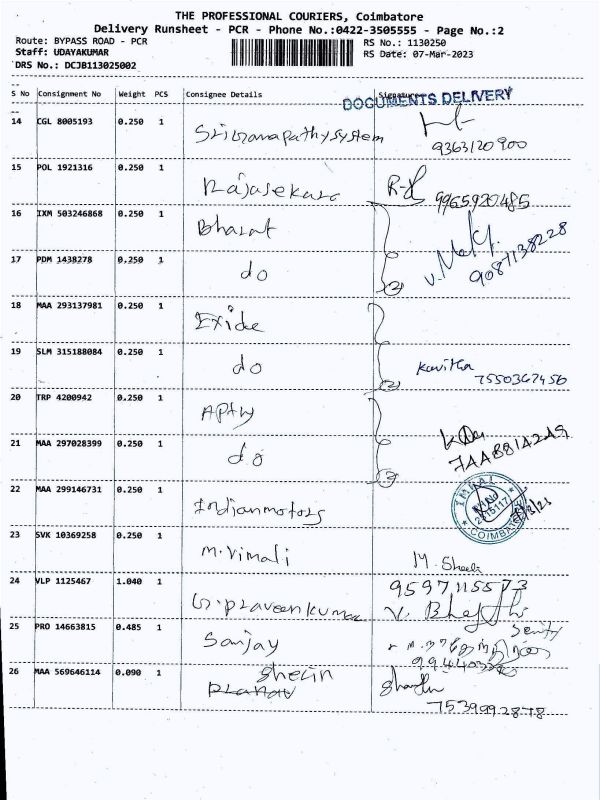 THE PROFESSIONAL COURIERS, Coimbatore
Delivery Runsheet - PCR - Phone No.:0422-3505555 - Page No.:2
Route: BYPASS ROAD - PCR
Staff: UDAYAKUMAR
DRS No.: DCJB113025002
RS No.: 1130250
RS Date: 07-Mar-2023
S No Consignment No Weight PCS Consignee Details Signature
DOCUMENTS DELIVERY
14 CGL 8005193 0.250 1 Sriganapathysystem
9363120900
15 POL 1921316 0.250 1 Rajasekara
9965920485
16 IXM 503246868 0.250 1 Bharat
17 PDM 1438278 0.250 1 do (2)
9087138228
18 MAA 293137981 0.250 1 Exide
19 SLM 315188084 0.250 1 do (2) Kavitha
7550367456
20 TRP 4200942 0.250 1 Apty
21 MAA 297028399 0.250 1 do
22 MAA 299146731 0.250 1 Indianmotors
COIMBATORE
23 SVK 10369258 0.250 1 M.Vimali M. Sheela
24 VLP 1125467 1.040 1 G.Praveenkumar 9597115573
25 PRO 14663815 0.485 1 Sanjay
26 MAA 569646114 0.090 1 Sherin
7539992878